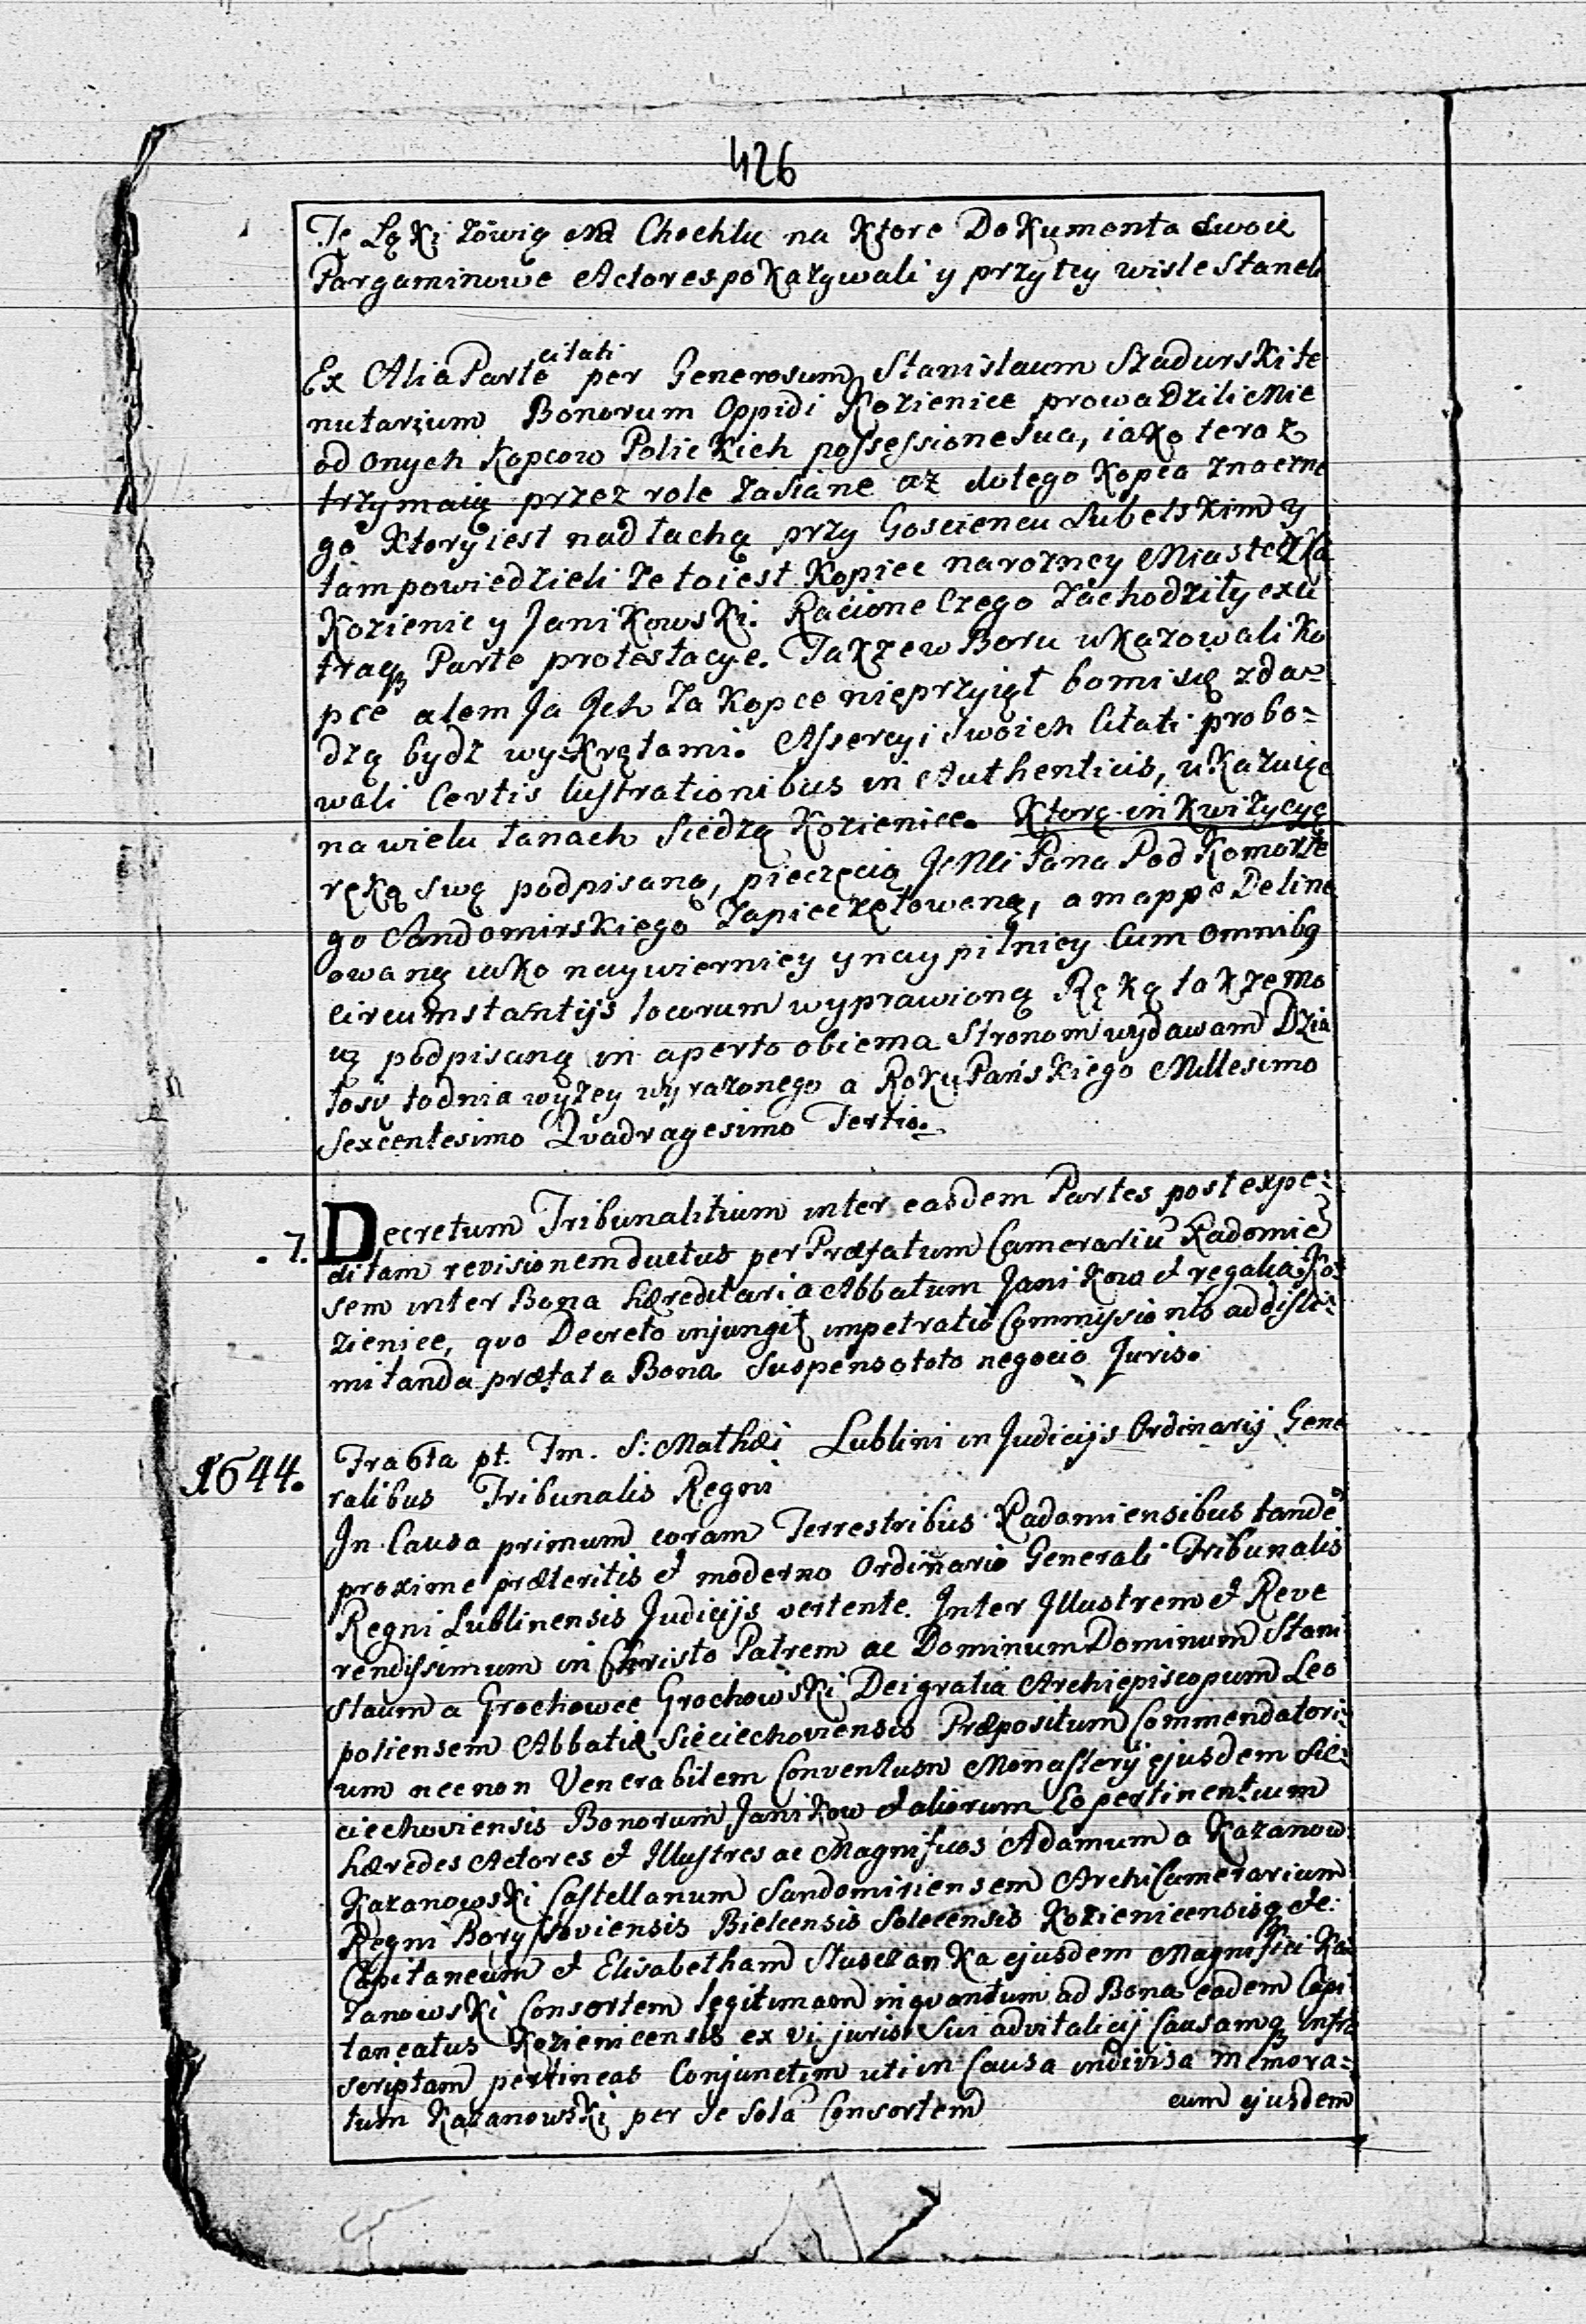 426
Te Łąki zowią na Chechlu na Ktore Dokumenta swoie
Pargaminowe Actores pokazywali y przy tey wisle Staneli
Ex Alia Parte citati per Generosum Stanislaum Szadurski te
nutarium Bonorum Oppidi Kozienice prowadzili Mie
od onych Kopcow Polickich possessione sua, iako teraz
trzymaią przez role zasiane az do tego Kopca znaczne
go Ktory iest nad łachą przy Gosciencu Lubelskim y
tam powiedzieli ze to iest Kopiec narozney Miasteczka
Kozienic y Janikowski. Racione Czego zachodziły ex u
traq Parte protestacye. Takze w Boru ukazowali Ko
pce alem Ja Jch za Kopce nieprzyiął bo mi się zda=
dzą bydz wykrętami. Assercyi swoich Citati probo=
wali Certis lustrationibus in Authenticis, ukazuiąc
na wielu łanach siedzą Kozienice. Ktorą inkwizycyą
ręką swą podpisaną, pieczęcią JeMci Pana Podkomorze
go Sandomirskiego zapieczętowaną, a mappe Deline
owaną iako naywierniey y naypilniey Cum omnibq
circumstantijs locorum wyprawioną Ręką takze mo
ią podpisaną in aperto obiema Stronom wydawam Dzia
ło sy to dnia wyżey wyrazonego a Roku Pańskiego Millesimo
Sexcentesimo Qvadragesimo Tertio.
. 7. Decretum Tribunalitium inter easdem Partes post expe=
ditam revisionem ductus per Præfatum Camerariu Radomie
sem inter Bona hæreditaria Abbatum Janikow et regalia Ko=
zienice, qvo Decreto injungit impetratio Commissionis ad disli=
mitanda præfata Bona Suspenso toto negocio Juris.
1644. Fra 6ta pt. Fm. S: Mathæi Lublini in Judicijs Ordinarijs Gene
ralibus Tribunalis Regni
In Causa primum coram Terrestribus Radomiensibus tande
proxime præteritis et moderno Ordinario Generali Tribunalis
Regni Lublinensis Judicijs vertente. Inter Illustrem et Reve
rendissimum in Christo Patrem ac Dominum Dominum Stani
slaum a Grochowce Grochowski Dei gratia Archiepiscopum Leo
poliensem Abbatiæ Sieciechoviensis Præpositum Commendatori=
um necnon Venerabilem Conventum Monasterij ejusdem Sie=
ciechoviensis Bonorum Janikow et aliorum Eo pertinentium
hæredes Actores et Illustres ac Magnificos Adamum a Kazanow
Kazanowski Castellanum Sandomiriensem ArchiCamerarium
Regni Borysoviensis Bielcensis Solecensis Kozienicensisq etc:
Capitaneum et Elisabetham Słuszanka ejusdem Magnifici Ka
zanowski Consortem legitimam inqvantum ad Bona eadem Capi
taneatus Kozienicensis ex vi juris Sui advitalicij Causamq infra
scriptam pertineas Conjunctim uti in Causa indivisa memora=
tum Kazanowski per se sola Consortem cum ejusdem